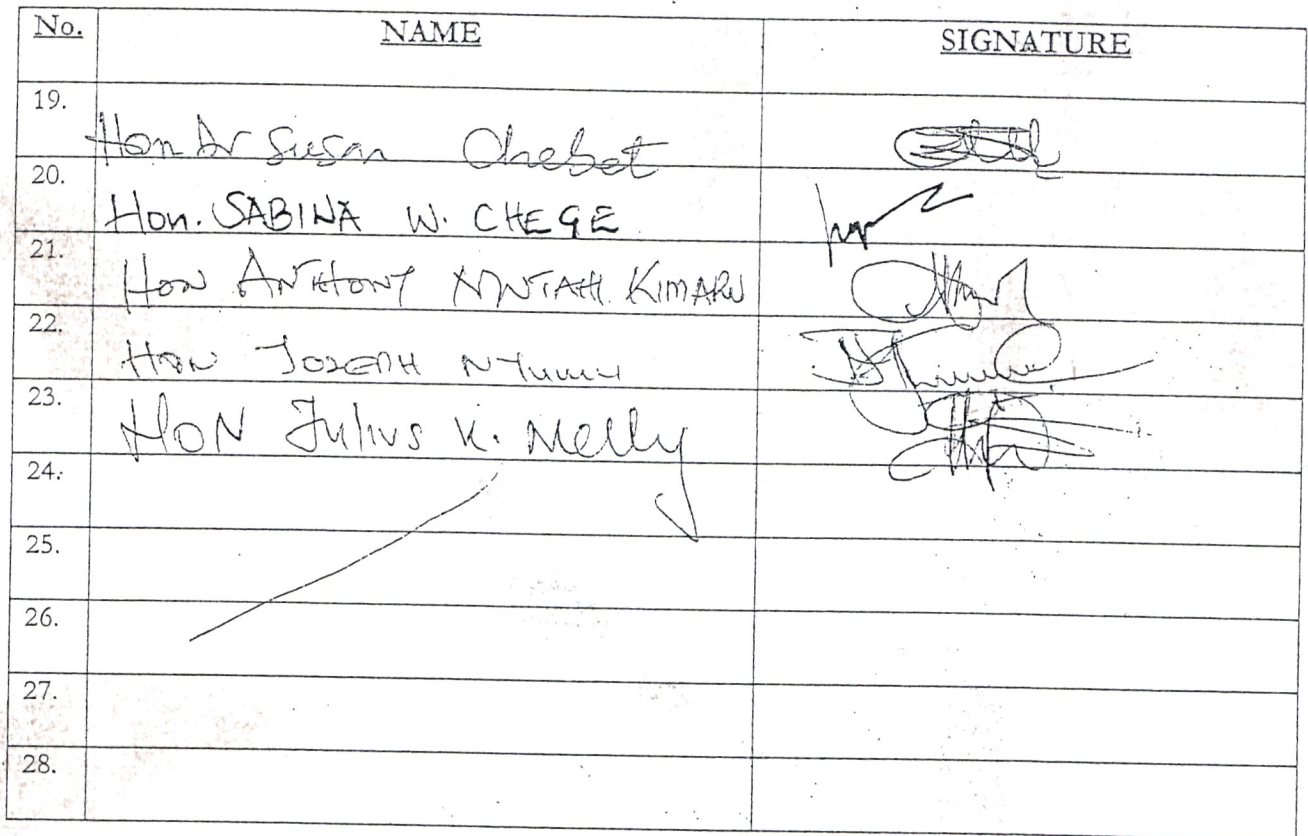 No. NAME SIGNATURE
19. Hon Dr Susan Chebet
20. Hon. SABINA W. CHEGE
21. HON ANTHONY KIMARU
22. HON JOSEPH
23. HON Julius K. Melly
24.
25.
26.
27.
28.